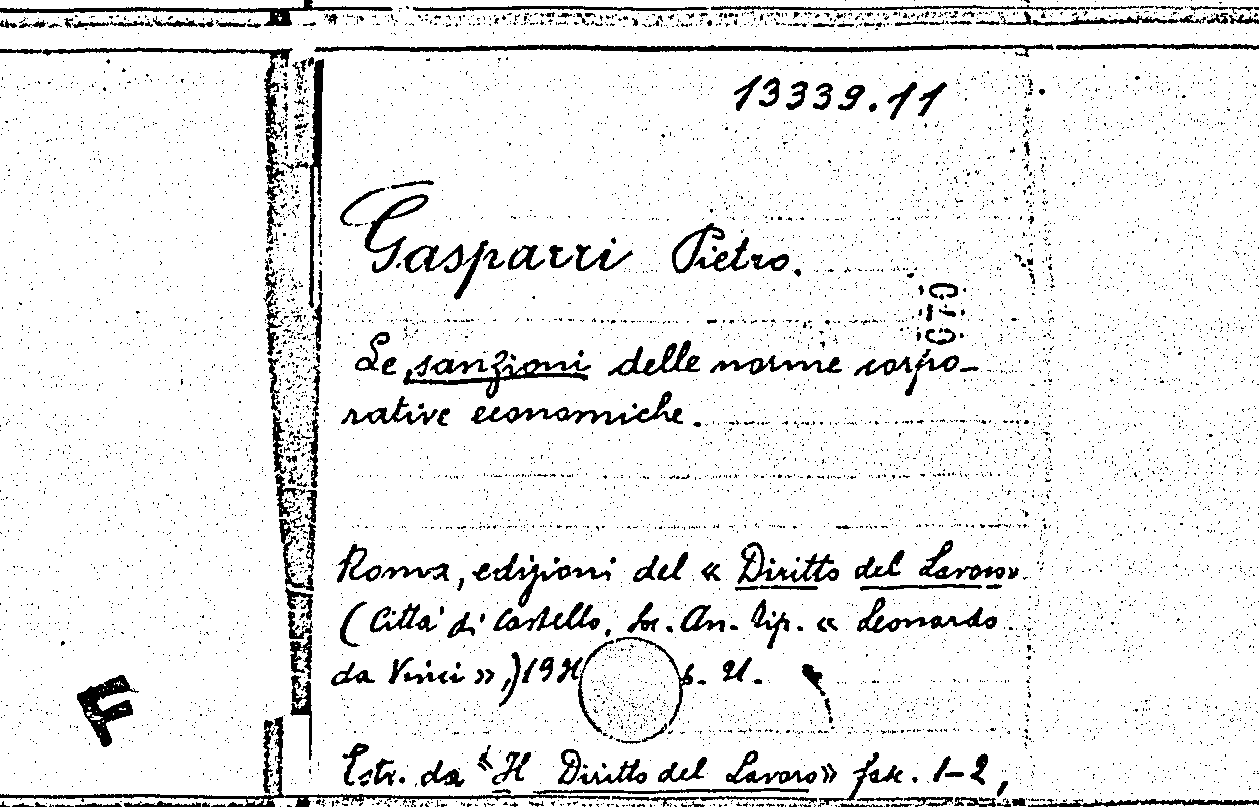 13339.11
Gasparri Pietro.
070
Le sanzioni delle norme corpo-
rative economiche.
Roma, edizioni del « Diritto del Lavoro»
(Città di Castello, Soc. An. Tip. « Leonardo
da Vinci »,) p. 21.
Estr. da «Il Diritto del Lavoro» fasc. 1-2,